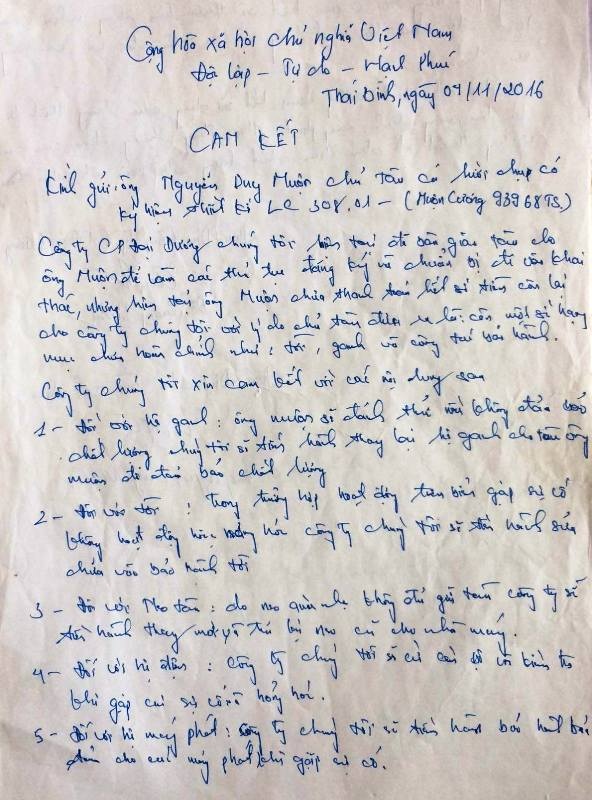 Cộng hòa xã hội chủ nghĩa Việt Nam
Độc lập - Tự do - Hạnh Phúc
Thái Bình, ngày 04/11/2016
CAM KẾT
Kính gửi: ông Nguyễn Duy Muộn chủ tàu cá lưới chụp có
ký hiệu thiết kế LC 308.01 - (Muộn Cương 93968TS)
Công ty CP Đại Dương chúng tôi hiện tại đã bàn giao tàu cho
ông Muộn để làm các thủ tục đăng ký và chuẩn bị đi vào khai
thác, nhưng hiện tại ông Muộn chưa thanh toán hết số tiền còn lại
cho công ty chúng tôi với lý do chủ tàu đưa ra là: còn một số hạng
mục chưa hoàn chỉnh như: tời, ganh và công tác bảo hành.
Công ty chúng tôi xin cam kết với các nội dung sau
1 - Đối với hệ ganh: ông Muộn sẽ đánh thử nếu không đảm bảo
chất lượng chúng tôi sẽ tiến hành thay lại hệ ganh cho tàu ông
Muộn để đảm bảo chất lượng
2 - Đối với tời: trong trường hợp hoạt động trên biển gặp sự cố
không hoạt động hỏng hóc công ty chúng tôi sẽ tiến hành sửa
chữa và bảo hành tời
3 - Đối với Neo tàu: do neo quá nhẹ không đủ giữ tàu công ty sẽ
tiến hành thay mới và trả lại neo cũ cho nhà máy.
4 - Đối với hệ điện: Công ty chúng tôi sẽ cử cán bộ vào kiểm tra
khi gặp sự cố hỏng hóc.
5 - Đối với hệ máy phát: Công ty chúng tôi sẽ tiến hành bảo hành
cho máy phát khi gặp sự cố.